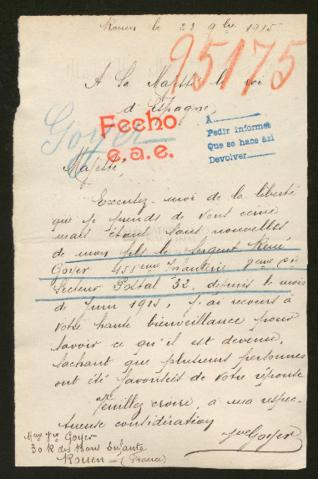 Rouen le 23 9bre 1915
95175
A Sa Majesté le roi
d'Espagne,
Goyer
Fecho
e.a.e.
A
Pedir informes
Que se hace así
Devolver
Majesté,
Excusez-moi de la liberté
que je prends de vous écrire
mais étant sans nouvelles
de mon fils le Sergent René
Goyer Infanterie
Secteur Postal 32, depuis le mois
de Juin 1915, j'ai recours à
votre haute bienveillance pour
savoir ce qu'il est devenu,
sachant que plusieurs personnes
ont été favorisées de votre réponse
Veuillez croire, à ma respec-
tueuse considération
Goyer
Mme Goyer
30 R des Bons Enfants
Rouen (France)